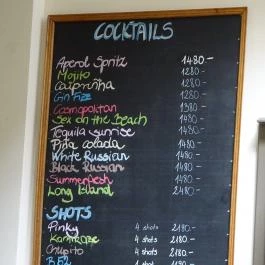 COCKTAILS
Aperol Spritz 1480.-
Mojito 1280.-
Caipirinha 1280.-
Gin Fizz 1280.-
Cosmopolitan 1380.-
Sex on the Beach 1480.-
Tequila sunrise 1480.-
Piña colada 1480.-
White Russian 1480.-
Black Russian 1480.-
Summerfresh 1480.-
Long Island 2480.-
SHOTS
Pinky 4 shots 2180.-
Kamikaze 4 shots 2180.-
Chupito 4 shots 2180.-
B52